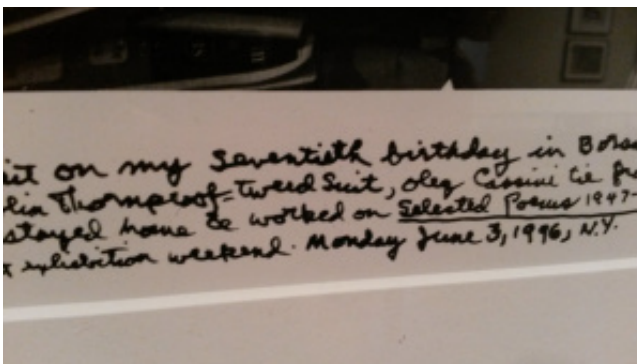 it on my seventieth birthday in Bosto
lin Thornproof-Tweed Suit, Oleg Cassini tie fr
stayed home & worked on Selected Poems 1947-
exhibition weekend. Monday June 3, 1996, N.Y.